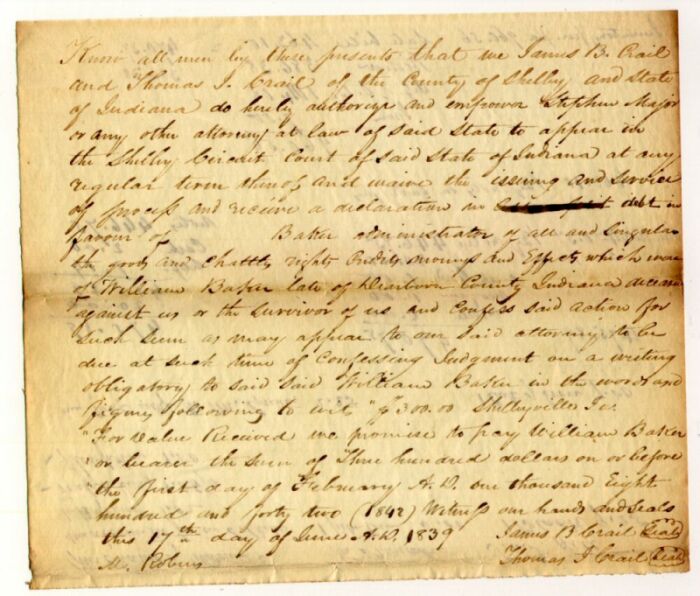 Know all men by these presents that we James B. Crail
and Thomas J. Crail of the County of Shelby and State
of Indiana do hereby authorize and empower Stephen Major
or any other attorney at law of said State to appear in
the Shelby Circuit Court of said State of Indiana at any
regular term thereof and waive the issuing and service
of process and receive a declaration in debt in
favour of Baker administrator of all and singular
the goods and chattles rights Credits moneys and Effects which were
of William Baker late of Dearborn County Indiana deceased
against us or the survivor of us and confess said action for
such sum as may appear to our said attorney to be
due at such time of Confessing Judgment on a writing
obligatory to said said William Baker in the words and
figures following to wit "$300.00 Shelbyville Ia.
"For Value Received we promise to pay William Baker
or bearer the sum of Three hundred dollars on or before
the first day of February A.D. one thousand Eight
hundred and forty two (1842) Witness our hands and Seals
this 17th day of June A.D. 1839 James B Crail Seal
M. Robins Thomas J Crail Seal